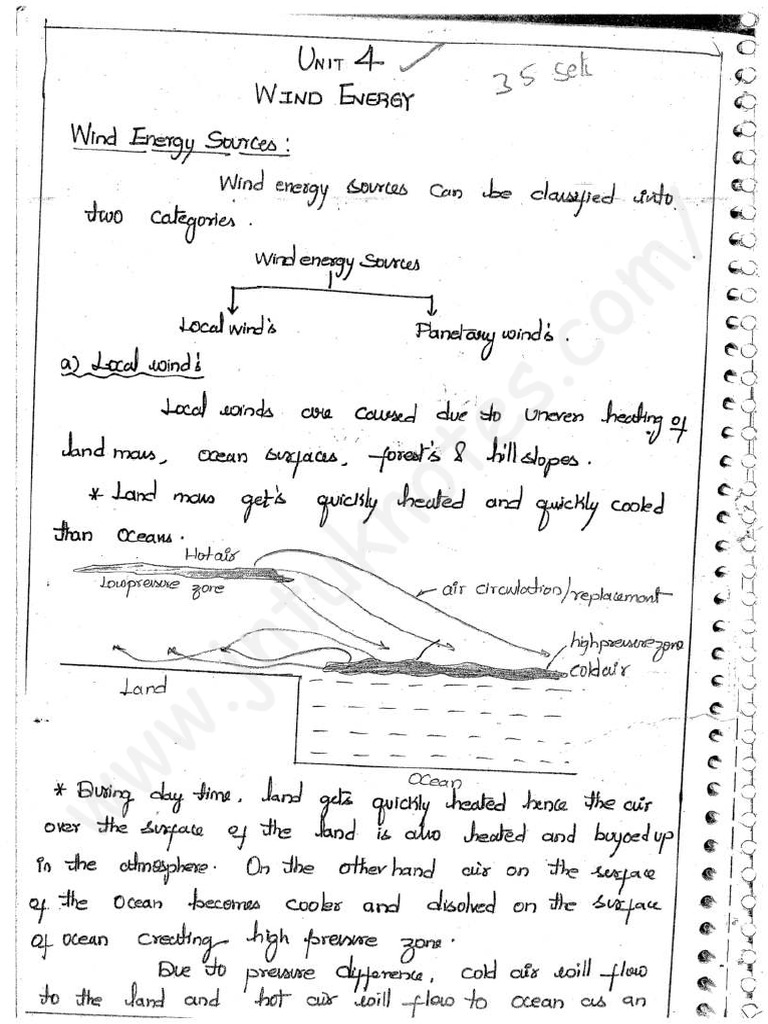 UNIT 4
35 Set
WIND ENERGY
Wind Energy Sources:
Wind energy sources can be classified into
two categories.
Wind energy Sources
Local wind's Planetary wind's.
a) Local wind's
Local winds are caused due to uneven heating of
land mass, ocean surfaces, forest's & hill slopes.
* Land mass get's quickly heated and quickly cooled
than oceans.
Hot air
Low pressure zone
air circulation/replacement
high pressure zone
cold air
Land
Ocean
* During day time, land gets quickly heated hence the air
over the surface of the land is also heated and buyoed up
in the atmosphere. On the other hand air on the surface
of the ocean becomes cooler and disolved on the surface
of ocean creating high pressure zone.
Due to pressure difference, cold air will flow
to the land and hot air will flow to ocean as an
www.jntuknotes.com/